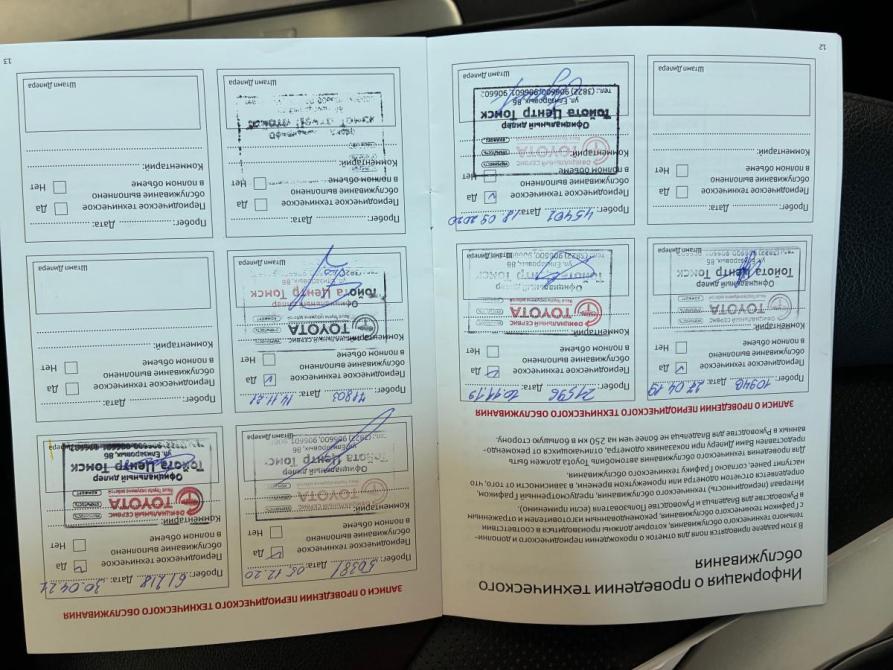 Информация о проведении технического
обслуживания
В этот разделе приводятся поля для отметок о прохождении периодического и дополни-
тельного технического обслуживания, которые должны производиться в соответствии
с Графиком технического обслуживания, рекомендованным изготовителем и отраженным
в Руководстве для Владельца и Руководстве Пользователя (если применимо).
Интервал (периодичность) технического обслуживания, предусмотренный Графиком,
определяется отчетом одометра или промежутком времени, в зависимости от того, что
наступит ранее, согласно Графику технического обслуживания.
Для проведения технического обслуживания автомобиль Toyota должен быть
предоставлен Вами Дилеру при показаниях одометра, отличающихся от рекомендо-
ванных в Руководстве для Владельца не более чем на 250 км в большую сторону.
ЗАПИСИ О ПРОВЕДЕНИИ ПЕРИОДИЧЕСКОГО ТЕХНИЧЕСКОГО ОБСЛУЖИВАНИЯ
Пробег: 10940 Дата: 27.04.19
Периодическое техническое
обслуживание выполнено
в полном объеме
Да
Нет
Комментарий:
TOYOTA
Официальный дилер
Тойота Центр Томск
ул. Елизаровых, 8Б
Штамп Дилера
Пробег: 21596 Дата: 10.11.19
Периодическое техническое
обслуживание выполнено
в полном объеме
Да
Нет
Комментарий:
ОФИЦИАЛЬНЫЙ СЕРВИС
TOYOTA
Официальный дилер
Тойота Центр Томск
ул. Елизаровых, 8Б
Штамп Дилера
Пробег: Дата:
Периодическое техническое
обслуживание выполнено
в полном объеме
Да
Нет
Комментарий:
Штамп Дилера
Пробег: 45401 Дата: 18.09.2020
Периодическое техническое
обслуживание выполнено
в полном объеме
Да
Нет
Комментарий:
ОФИЦИАЛЬНЫЙ СЕРВИС
TOYOTA
Официальный дилер
Тойота Центр Томск
ул. Елизаровых, 8Б
тел.: (3822) 906600, 906601, 906602
Штамп Дилера
12
ЗАПИСИ О ПРОВЕДЕНИИ ПЕРИОДИЧЕСКОГО ТЕХНИЧЕСКОГО ОБСЛУЖИВАНИЯ
Пробег: 50381 Дата: 05.12.20
Периодическое техническое
обслуживание выполнено
в полном объеме
Да
Нет
Комментарий:
TOYOTA
Официальный дилер
Тойота Центр Томск
ул. Елизаровых, 8Б
Штамп Дилера
Пробег: 61218 Дата: 30.04.21
Периодическое техническое
обслуживание выполнено
в полном объеме
Да
Нет
Комментарий:
ОФИЦИАЛЬНЫЙ СЕРВИС
TOYOTA
Официальный дилер
Тойота Центр Томск
ул. Елизаровых, 8Б
Штамп Дилера
Пробег: 71803 Дата: 14.11.21
Периодическое техническое
обслуживание выполнено
в полном объеме
Да
Нет
Комментарий:
ОФИЦИАЛЬНЫЙ СЕРВИС
TOYOTA
Официальный дилер
Тойота Центр Томск
ул. Елизаровых, 8Б
Штамп Дилера
Пробег: Дата:
Периодическое техническое
обслуживание выполнено
в полном объеме
Да
Нет
Комментарий:
Штамп Дилера
Пробег: Дата:
Периодическое техническое
обслуживание выполнено
в полном объеме
Да
Нет
Комментарий:
Штамп Дилера
Пробег: Дата:
Периодическое техническое
обслуживание выполнено
в полном объеме
Да
Нет
Комментарий:
Штамп Дилера
13